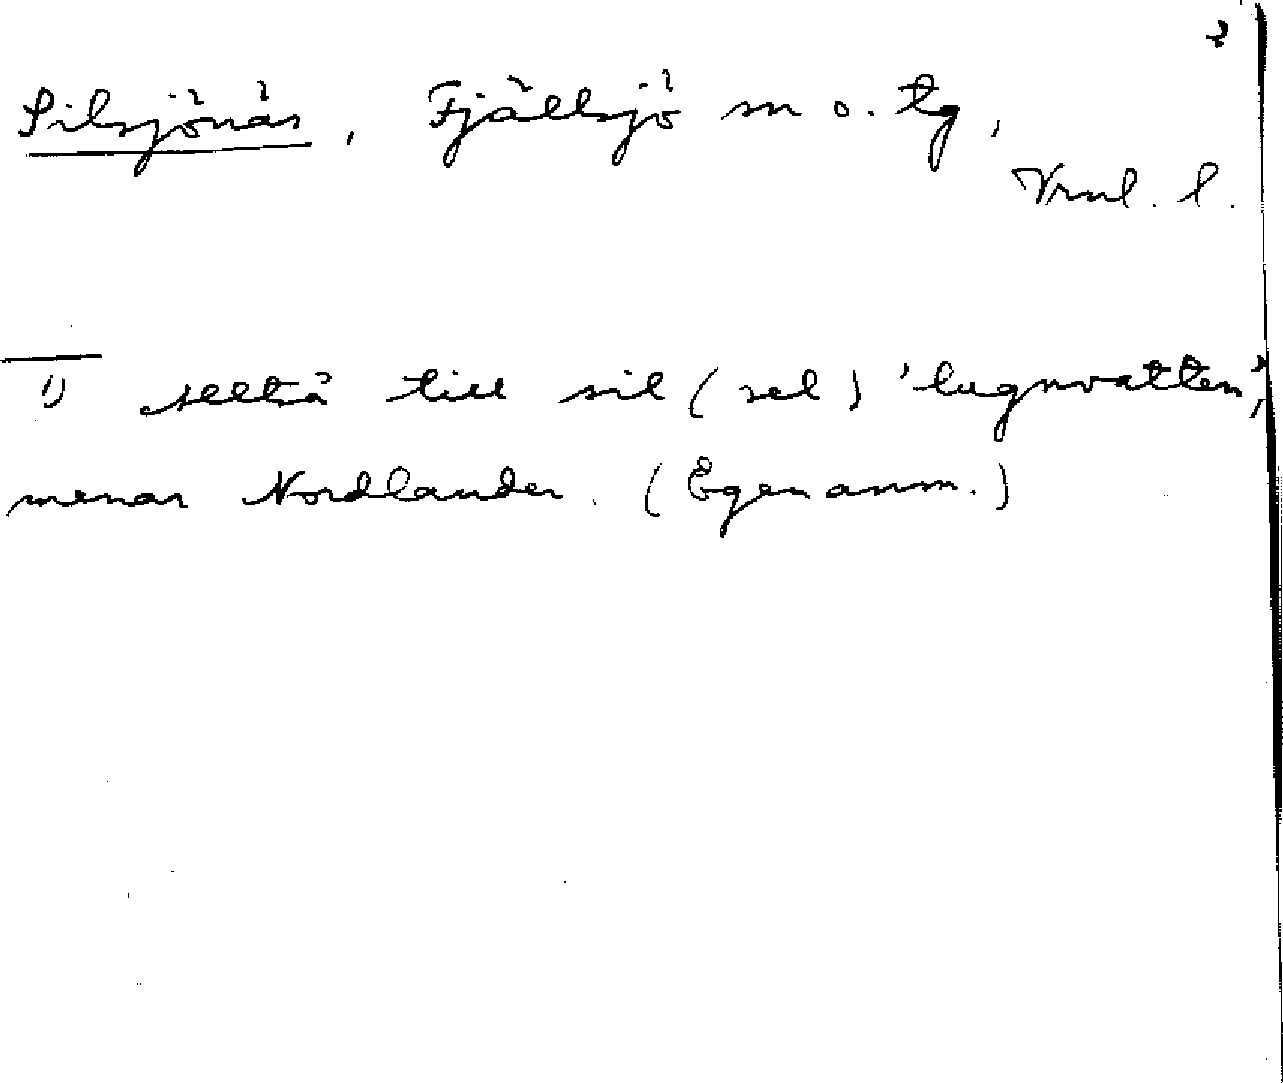 2
Silsjönäs, Fjällsjö sn o. tg,
Vrnl. l.
1) till sil (sel) 'lugnvatten',
menar Nordlander. (Egen anm.)